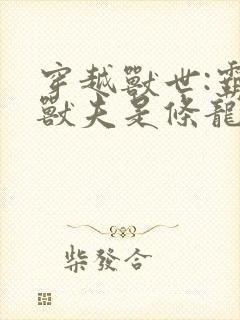 穿越獸世:霸
獸夫是條龍
柴發合